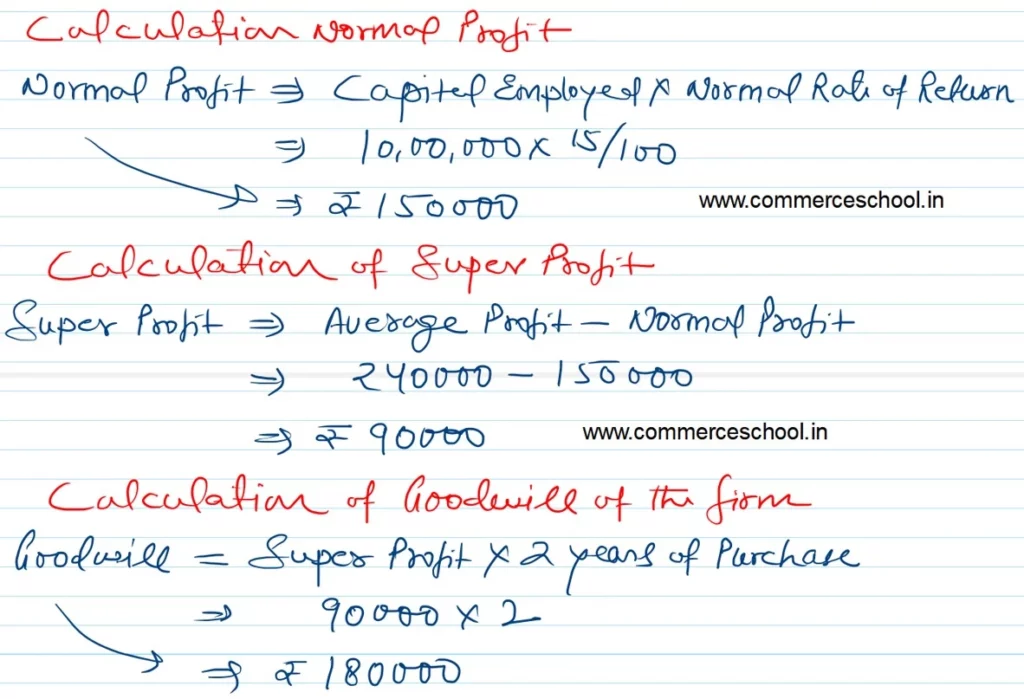 Calculation Normal Profit
Normal Profit ⇒ Capital Employed × Normal Rate of Return
⇒ 10,00,000 × 15/100
⇒ ₹ 150000
www.commerceschool.in
Calculation of Super Profit
Super Profit ⇒ Average Profit – Normal Profit
⇒ 240000 – 150000
⇒ ₹ 90000
www.commerceschool.in
Calculation of Goodwill of the firm
Goodwill = Super Profit × 2 years of Purchase
⇒ 90000 × 2
⇒ ₹ 180000